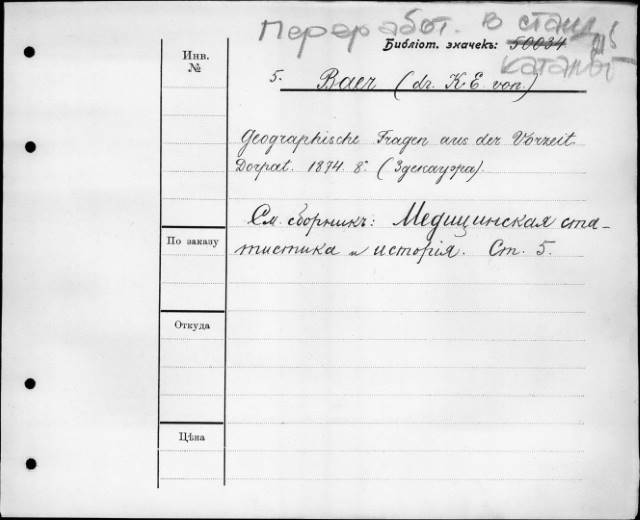 Переработ. в станд.
Библіот. значекъ: 50034
каталог
Инв.
№
5. Baer (dr. K. E. von)
Geographische Fragen aus der Vorzeit.
Dorpat. 1874. 8°. (Здекауэра).
См. сборникъ: Медицинская ста-
тистика и исторія. Ст. 5.
По заказу
Откуда
Цѣна